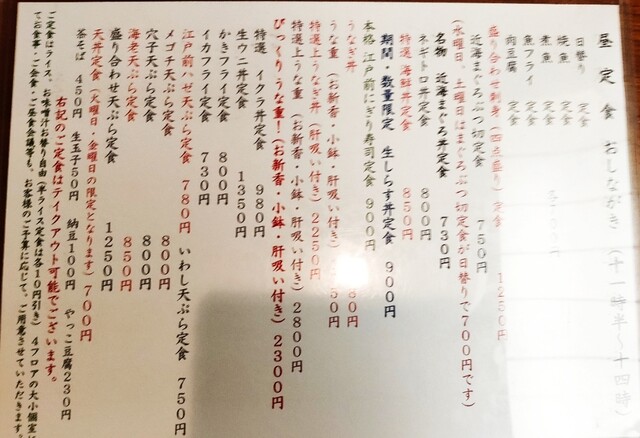 昼定食 おしながき（十一時半～十四時）
日替り 定食
焼魚 定食
煮魚 定食
魚フライ 定食
肉豆腐 定食
盛り合わせ刺身（四点盛り）定食 1250円
近海まぐろぶつ切定食 750円
（水曜日。土曜日はまぐろぶつ切定食が日替りで700円です）
名物 近海まぐろ丼定食 730円
ネギトロ丼定食 800円
特選 海鮮丼定食 850円
期間・数量限定 生しらす丼定食 900円
本格 江戸前にぎり寿司定食 900円
うなぎ丼 80円
うな重（お新香・小鉢・肝吸い付き）
特選上うなぎ丼（肝吸い付き）2250円
特選上うな重（お新香・小鉢・肝吸い付き）2800円
びっくりうな重！（お新香・小鉢・肝吸い付き）2300円
特選 イクラ丼定食 980円
生ウニ丼定食 1350円
かきフライ定食 800円
イカフライ定食 730円
江戸前ハゼ天ぷら定食 780円 いわし天ぷら定食 750円
メゴチ天ぷら定食 800円
穴子天ぷら定食 800円
海老天ぷら定食 850円
盛り合わせ天ぷら定食 1250円
天丼定食（火曜日・金曜日の限定となります）700円
茶そば 450円 生玉子50円 納豆100円 やっこ豆腐230円
右記のご定食はテイクアウト可能でございます。
ご定食はライス。お味噌汁お替り自由（半ライス定食は各10円引き）4フロアの大小個室に
てお食事・ご会食・ご昼食会議等も。お客様のご予算に応じて。ご用意させていただきます。